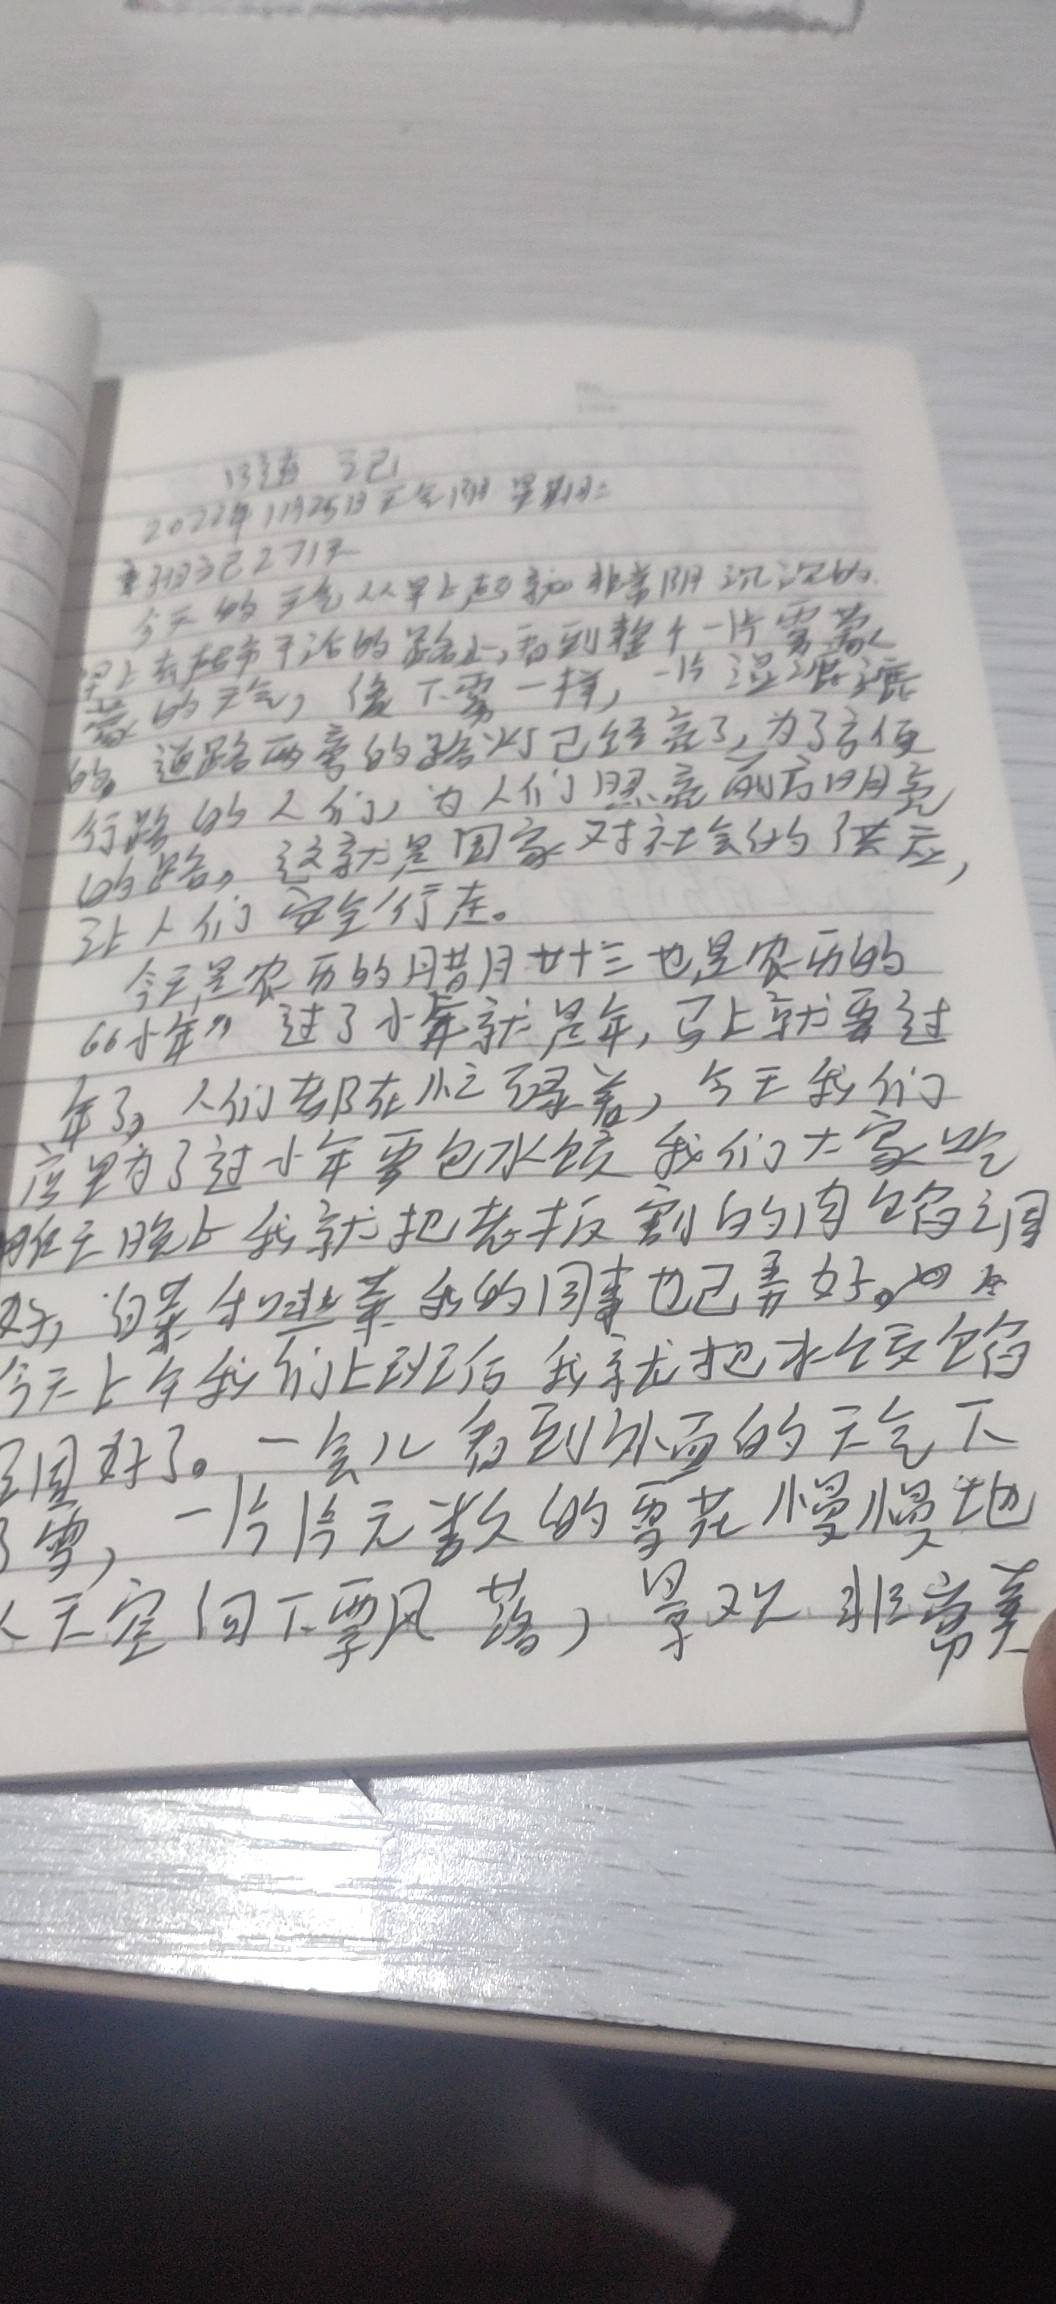 随记
2022年1月25日天气阴 星期二
日记271天
今天的天气从早上起就非常阴沉沉的.
早上去超市干活的路上,看到整个一片雾蒙
蒙的天气,像下雾一样,一片湿漉漉
的。道路两旁的路灯已经亮了,为了方便
行路的人们,为人们照亮前方明亮
的路,这就是国家对社会的供应,
让人们安全行走。
今天是农历的腊月廿十三也是农历的
“小年”过了小年就是年,马上就要过
年了,人们都在忙碌着,今天我们
店里为了过小年要包水饺我们大家吃
昨天晚上我就把老板割的肉馅调
好,白菜和韭菜我的同事也已弄好。
今天上午我们上班后我就把水饺馅
调好了。一会儿看到外面的天气下
了雪,一片片无数的雪花慢慢地
从天空向下飘落,景观非常美